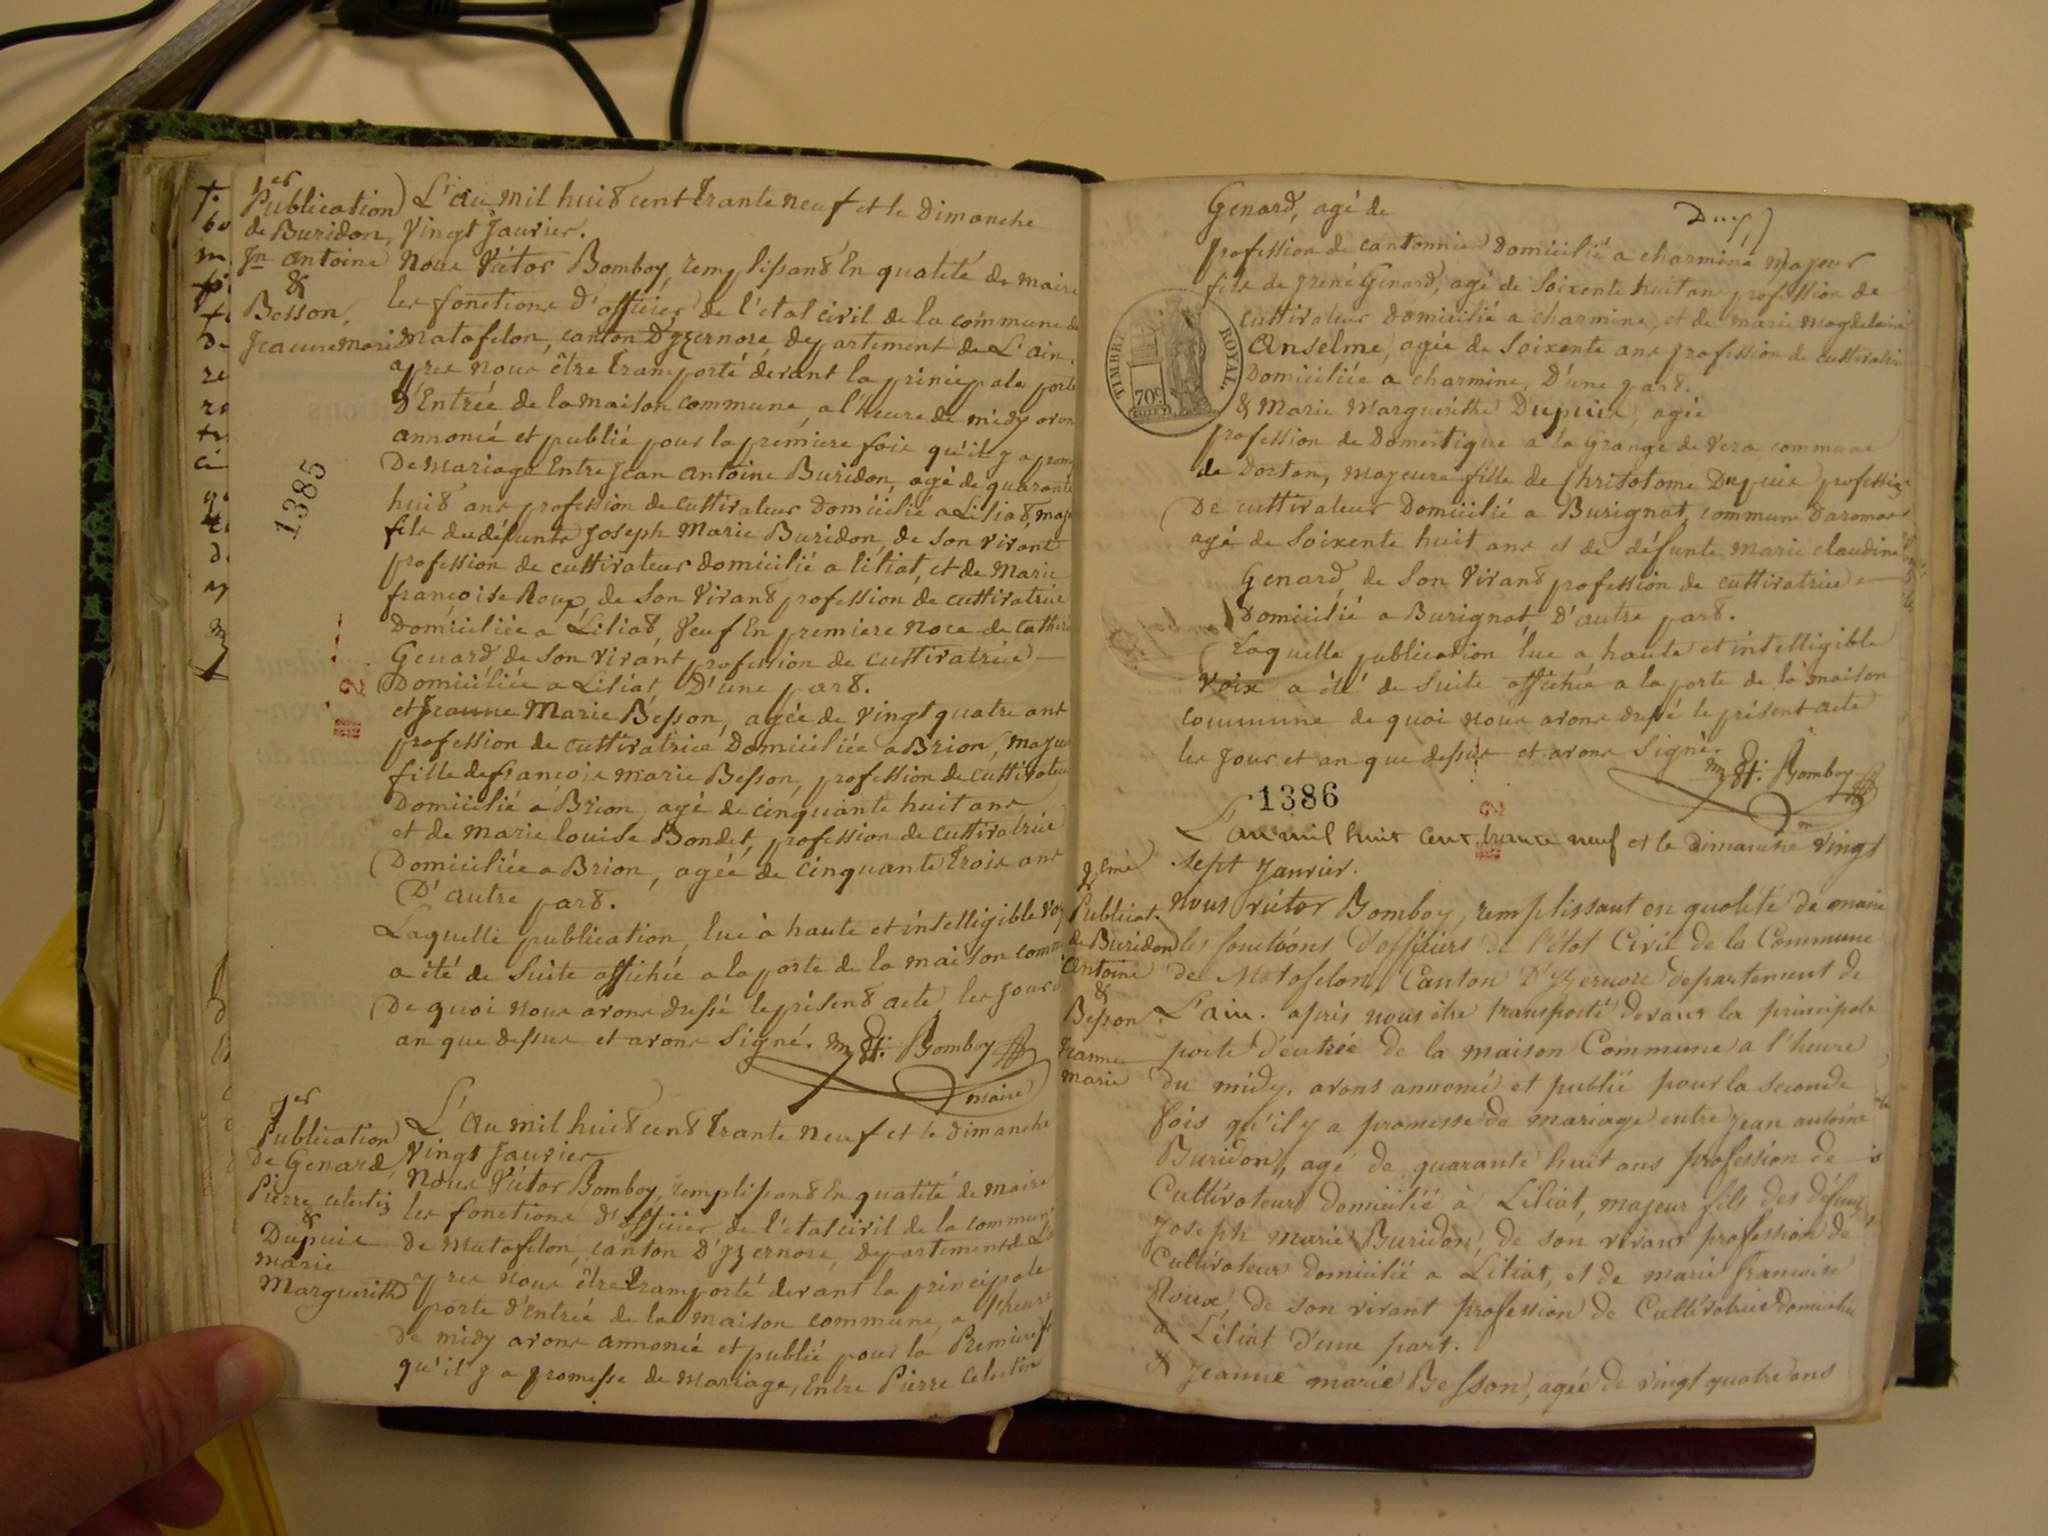 1er
Publication
de Buridon,
Jn antoine
&
Besson,
Jeanne mari
L'an mil huit cent trante neuf et le Dimanche
vingt Janvier.
Nous Victor Bomboy, remplissant En qualité de maire
les fonctions d'officier de l'état civil de la commune de
Matafelon, canton D'yzernore, département de L'ain.
apres nous être tramporté devant la principale porte
d'Entrée de la maison commune, a l'heure de midy avon
annoncé et publié pour la premiere fois qu'il y a prom
De mariage Entre Jean antoine Buridon, agé de quarante
huit ans profession de cultivateur domicilié a Liliat, maje
fils du défunts Joseph Marie Buridon, de son vivant
profession de cultivateur domicilié a liliat, et de Marie
françoise Roux, de son vivant profession de cultivatrice
Domiciliée a Liliat, veuf En premiere noce de Cathera
Genard de son vivant profession de cultivatrice
Domiciliée a Liliat D'une part.
et Jeanne Marie Besson, agée de vingt quatre ans
profession de cultivatrice Domiciliée a Brion, majeu
fille de françois marie Besson, profession de cultivateu
Domicilié a Brion, agé de cinquante huit ans
et de marie louise Bondet, profession de cultivatrice
Domiciliée a Brion, agée de cinquante trois ans
D'autre part.
Laquelle publication, lue à haute et intelligible voi
a été de suite affichée a la porte de la maison comm
De quoi nous avons dressé le présent acte les jour
an que dessus et avons signé. Bomboy
maire
1385
1er
Publication
de Genard,
Pierre celestin
&
Dupuis
marie
Marguerithe
L'an mil huit cent trante neuf et le dimanche
vingt Janvier
Nous Victor Bomboy, remplissant En qualité de maire
les fonctions d'officier de l'état civil de la commun
de Matafelon, canton D'yzernore, departement de L
apres nous être tramporté devant la principale
porte d'entrée de la maison commune, a l'heure
de midy avons annoncé et publié pour la Premiere f
qu'il y a promesse de mariage, Entre Pierre Celestin
Genard, agé de
profession de cantonnier Domicilié a charmine majeur
fils de Genard, agé de soixente huit ans profession de
cultivateur domicilié a charmine, et de marie magdelaine
Anselme, agée de soixente ans profession de cultivatri
Domiciliée a charmine, D'une part.
& Marie Marguerithe Dupuis, agée
profession de domestique a la Grange de vera commune
de Dortan, majeure fille de Chrisotome Dupuis profession
De cultivateur Domicilié a Burignat, commune Daromas
agé de soixente huit ans et de défunte marie claudine
Genard, de son vivant profession de cultivatrice
Domicilié a Burignat, D'autre part.
Laquelle publication lue a haute et intelligible
voix a été de suite affichée a la porte de la maison
commune de quoi nous avons dressé le présent acte
les jour et an que dessus et avons signé.
Bomboy
TIMBRE ROYAL.
70c
1386
2eme
Publicat.
de Buridon
Antoine
&
Besson
Jeanne
marie
L'an mil huit cent trante neuf et le dimanche vingt
sept Janvier.
Nous victor Bomboy, remplissant en qualité de maire
les fonctions d'officiers de l'état Civil de la Commune
de Matafelon, Canton D'Yzernore departement de
L'ain. apris nous être transporté devant la principale
porte d'entrée de la maison Commune a l'heure
du midy, avons annoncé et publié pour la seconde
fois qu'il y a promesse de mariage entre Jean antoine
Buridon, agé de quarante huit ans profession de
Cultivateur domicilié à Liliat, majeur fils des défunts
Joseph marie Buridon, de son vivant profession de
Cultivateur domicilié a Liliat, et de marie francoise
Roux, de son vivant profession de Cultivatrice domiciliée
a Liliat d'une part.
& Jeanne marie Besson, agée de vingt quatre ans